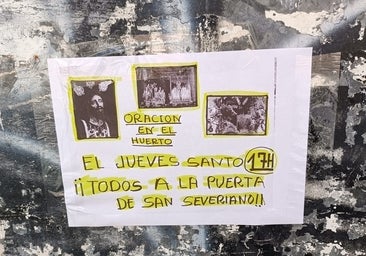 ORACION
EN EL
HUERTO
EL JUEVES SANTO 17H
¡¡TODOS A LA PUERTA
DE SAN SEVERIANO!!